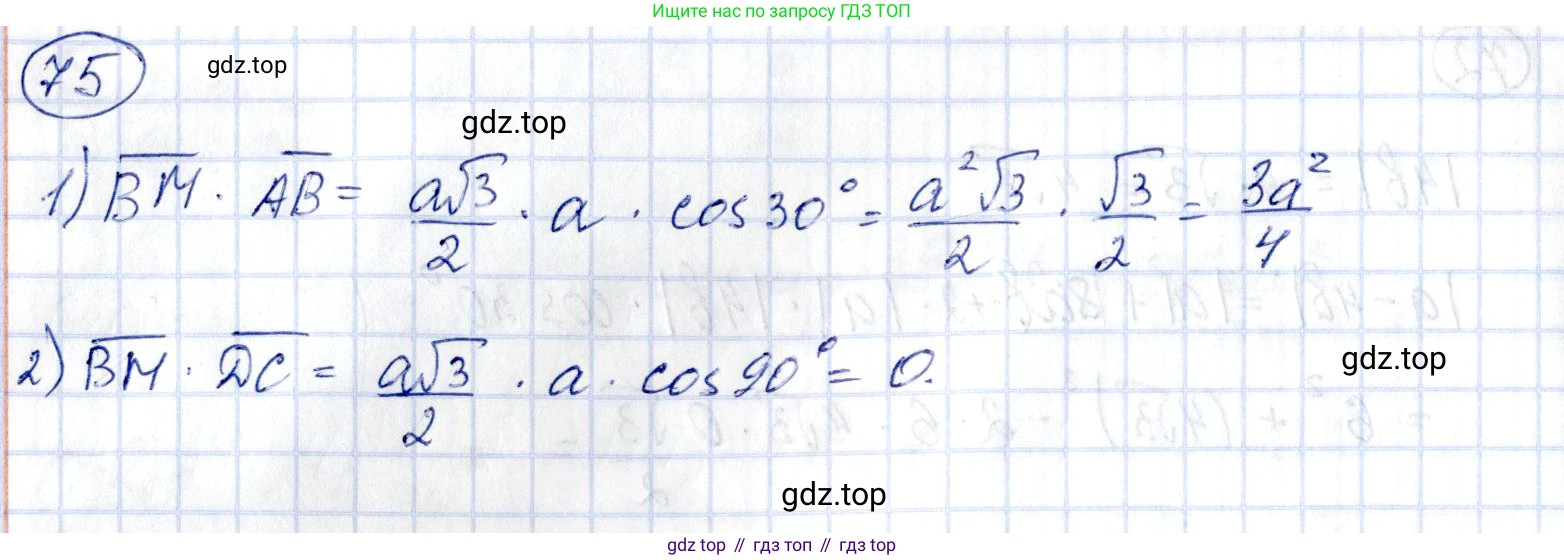 Ищите нас по запросу ГДЗ ТОП
75
gdz.top
gdz.top
1) B̅M̅ · A̅B̅ = a√3/2 · a · cos 30° = a²√3/2 · √3/2 = 3a²/4
2) B̅M̅ · D̅C̅ = a√3/2 · a · cos 90° = 0.
gdz.top
gdz.top
gdz top // гдз топ // гдз top